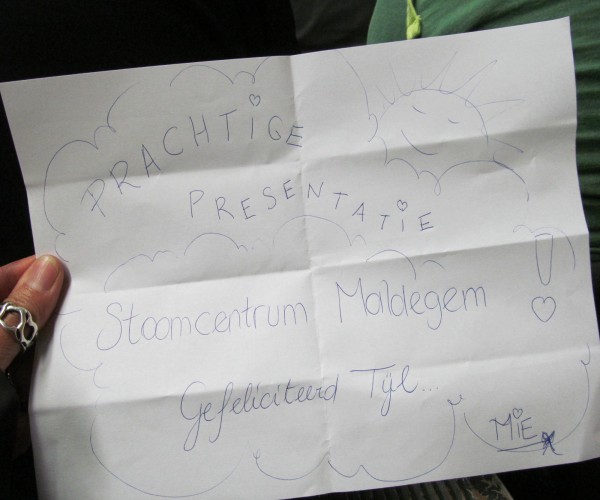 PRACHTIGE
PRESENTATIE
Stoomcentrum Maldegem !
Gefeliciteerd Tijl...
MiE